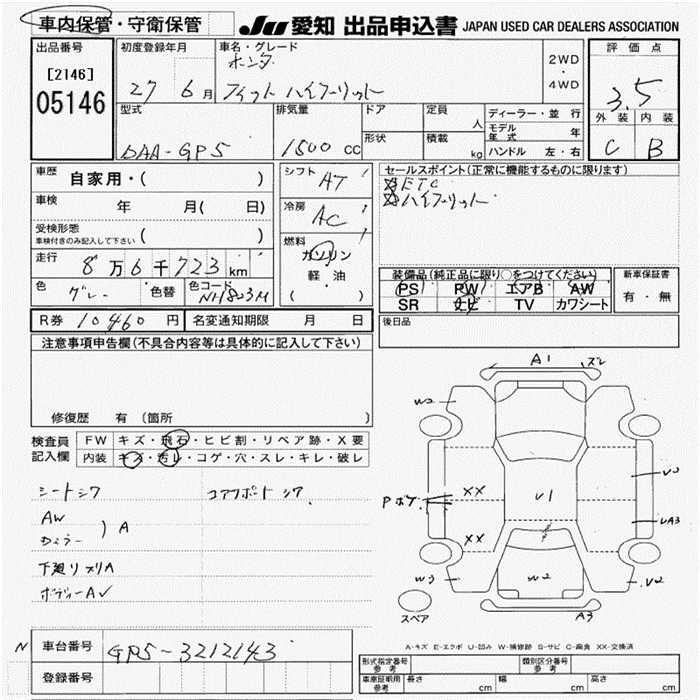 車内保管・守衛保管 JU 愛知 出品申込書 JAPAN USED CAR DEALERS ASSOCIATION
出品番号
[2146]
05146
初度登録年月
27 6月
車名・グレード
ホンダ
フィット ハイブリット
2WD
・
4WD
評価点
3.5
外装 内装
C B
型式
DAA-GP5
排気量
1500 CC
ドア
形状
定員
人
積載
kg
ディーラー・並行
モデル年式 年
ハンドル 左・右
車歴
自家用・( )
車検 年 月( 日)
受検形態
車検付きのみ記入して下さい ( )
走行
8万6千723km
色
グレー
色替
色コード
シフト
AT
冷房
AC
燃料
ガソリン
軽・油
( )
セールスポイント(正常に機能するものに限ります)
ETC
ハイブリット
装備品(純正品に限り○をつけてください)
PS PW エアB AW
SR ナビ TV カワシート
新車保証書
有・無
R券 10460円 名変通知期限 月 日
後日品
注意事項申告欄(不具合内容等は具体的に記入して下さい)
修復歴 有 (箇所 )
検査員記入欄
FW キズ・飛石・ヒビ割・リペア跡・X要
内装 キズ・汚レ・コゲ・穴・スレ・キレ・破レ
シートシワ
AW
) A
下廻リサビA
ボディーAU
A1
W2
XX
XX
U1
UA3
W3
W2
U2
A3
スペア
A-キズ E-エクボ U-凹み W-補修跡 S-サビ C-腐食 XX-交換済
N
車台番号 GP5-3212143
登録番号
形式指定番号
参考
類別区分番号
参考
車庫証明用
参考
長さ cm 幅 cm 高さ cm